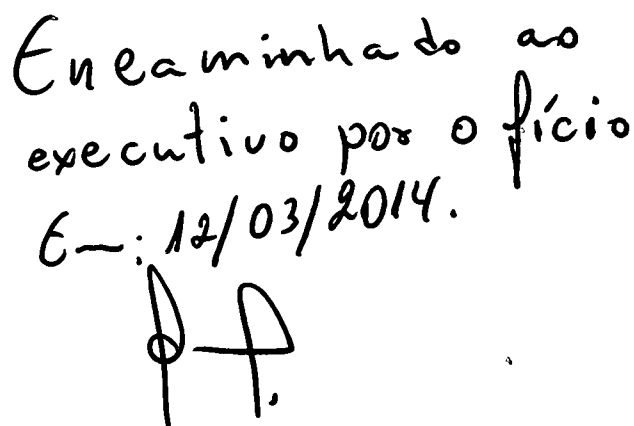 Encaminhado ao
executivo por ofício
Em: 12/03/2014.